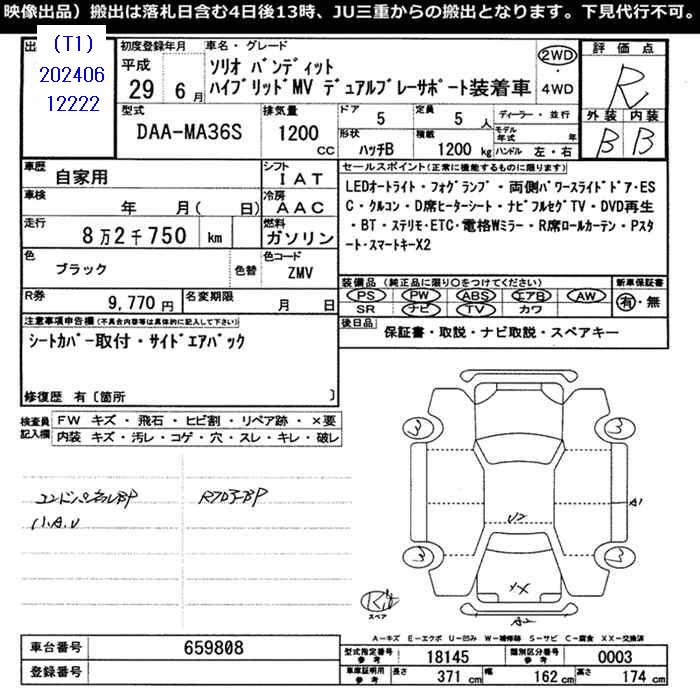 映像出品）搬出は落札日含む4日後13時、JU三重からの搬出となります。下見代行不可。
出
(T1)
202406
12222
初度登録年月
平成
29 6月
車名・グレード
ソリオ バンディット
ハイブリッドMV デュアルブレーサポート装着車
2WD
・
4WD
評価点
R
外装 内装
B B
型式
DAA-MA36S
排気量
1200
cc
ドア
5
定員
5人
形状
ハッチB
積載
1200kg
ディーラー・並行
モデル年式 年
ハンドル 左・右
車歴
自家用
シフト
IAT
車検
年 月( 日)
冷房
AAC
走行
8万2千750 km
燃料
ガソリン
色
ブラック
色替
色コード
ZMV
R券
9,770円
名変期限
月 日
セールスポイント(正常に機能するものに限り)
LEDオートライト・フォグランプ・両側パワースライドドア・ES
C・クルコン・D席ヒーターシート・ナビフルセグTV・DVD再生
・BT・ステリモ・ETC・電格Wミラー・R席ロールカーテン・Pスタ
ート・スマートキーX2
装備品（純正品に限り○をつけてください）
PS PW ABS エアB AW
SR ナビ TV カワ
新車保証書
有・無
後日品
保証書・取説・ナビ取説・スペアキー
注意事項申告欄(不具合内容等は具体的に記入して下さい)
シートカバー取付・サイドエアバック
修復歴 有〔箇所 〕
検査員記入欄
FW キズ・飛石・ヒビ割・リペア跡・×要
内装 キズ・汚レ・コゲ・穴・スレ・キレ・破レ
小A.U
3
3
3
3
A1
U2
XX
A2
スペア
A－キズ E－エクボ U－凹み W－補修跡 S－サビ C－腐食 XX－交換済
車台番号
659808
登録番号
型式指定番号
参考
18145
類別区分番号
参考
0003
車庫証明用
参考
長さ
371cm
幅
162cm
高さ
174cm